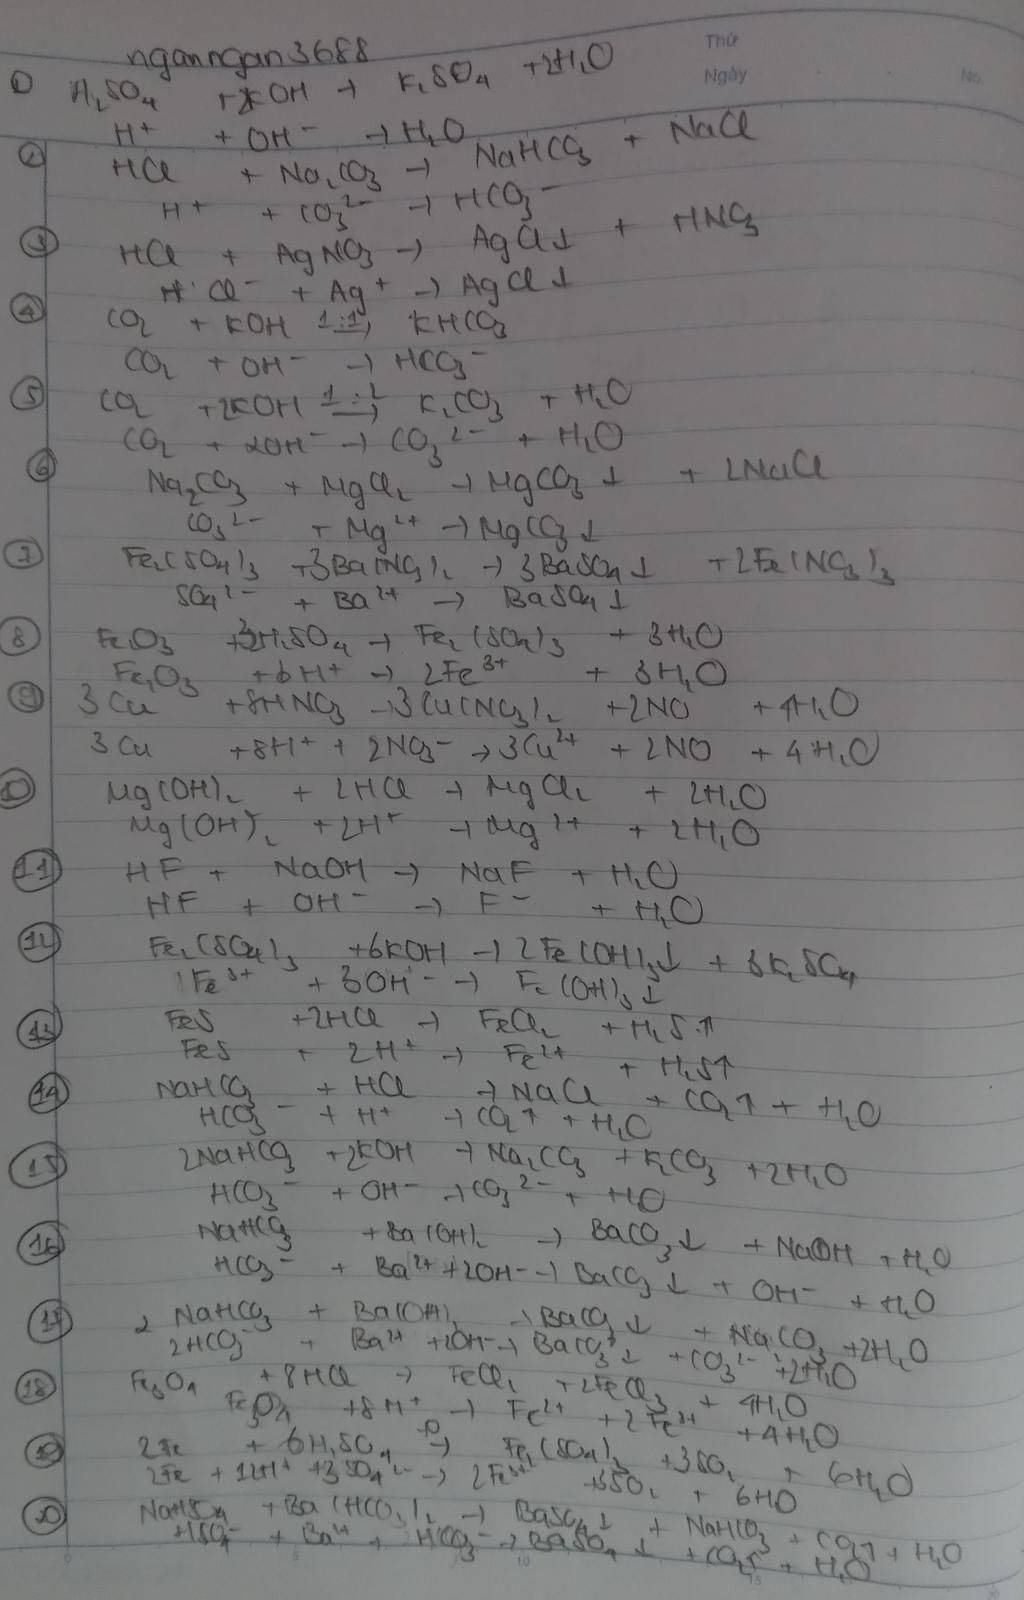 Thứ
Ngày
No.
nganngan3688
① H₂SO₄ + 2KOH → K₂SO₄ + 2H₂O
H⁺ + OH⁻ → H₂O
② HCl + Na₂CO₃ → NaHCO₃ + NaCl
H⁺ + CO₃²⁻ → HCO₃⁻
③ HCl + AgNO₃ → AgCl↓ + HNO₃
Cl⁻ + Ag⁺ → AgCl↓
④ CO₂ + KOH 1:1→ KHCO₃
CO₂ + OH⁻ → HCO₃⁻
⑤ CO₂ + 2KOH 1:2→ K₂CO₃ + H₂O
CO₂ + 2OH⁻ → CO₃²⁻ + H₂O
⑥ Na₂CO₃ + MgCl₂ → MgCO₃↓ + 2NaCl
CO₃²⁻ + Mg²⁺ → MgCO₃↓
⑦ Fe₂(SO₄)₃ + 3Ba(NO₃)₂ → 3BaSO₄↓ + 2Fe(NO₃)₃
SO₄²⁻ + Ba²⁺ → BaSO₄↓
⑧ Fe₂O₃ + 3H₂SO₄ → Fe₂(SO₄)₃ + 3H₂O
Fe₂O₃ + 6H⁺ → 2Fe³⁺ + 3H₂O
⑨ 3Cu + 8HNO₃ → 3Cu(NO₃)₂ + 2NO + 4H₂O
3Cu + 8H⁺ + 2NO₃⁻ → 3Cu²⁺ + 2NO + 4H₂O
⑩ Mg(OH)₂ + 2HCl → MgCl₂ + 2H₂O
Mg(OH)₂ + 2H⁺ → Mg²⁺ + 2H₂O
⑪ HF + NaOH → NaF + H₂O
HF + OH⁻ → F⁻ + H₂O
⑫ Fe₂(SO₄)₃ + 6KOH → 2Fe(OH)₃↓ + 3K₂SO₄
Fe³⁺ + 3OH⁻ → Fe(OH)₃↓
⑬ FeS + 2HCl → FeCl₂ + H₂S↑
FeS + 2H⁺ → Fe²⁺ + H₂S↑
⑭ NaHCO₃ + HCl → NaCl + CO₂↑ + H₂O
HCO₃⁻ + H⁺ → CO₂↑ + H₂O
⑮ 2NaHCO₃ + 2KOH → Na₂CO₃ + K₂CO₃ + 2H₂O
HCO₃⁻ + OH⁻ → CO₃²⁻ + H₂O
⑯ NaHCO₃ + Ba(OH)₂ → BaCO₃↓ + NaOH + H₂O
HCO₃⁻ + Ba²⁺ + 2OH⁻ → BaCO₃↓ + OH⁻ + H₂O
⑰ 2NaHCO₃ + Ba(OH)₂ → BaCO₃↓ + Na₂CO₃ + 2H₂O
2HCO₃⁻ + Ba²⁺ + 2OH⁻ → BaCO₃↓ + CO₃²⁻ + 2H₂O
⑱ Fe₃O₄ + 8HCl → FeCl₂ + 2FeCl₃ + 4H₂O
Fe₃O₄ + 8H⁺ → Fe²⁺ + 2Fe³⁺ + 4H₂O
⑲ 2Fe + 6H₂SO₄ → Fe₂(SO₄)₃ + 3SO₂ + 6H₂O
2Fe + 12H⁺ + 3SO₄²⁻ → 2Fe³⁺ + 3SO₂ + 6H₂O
⑳ NaHSO₄ + Ba(HCO₃)₂ → BaSO₄↓ + NaHCO₃ + CO₂↑ + H₂O
HSO₄⁻ + Ba²⁺ + HCO₃⁻ → BaSO₄↓ + CO₂↑ + H₂O
0 5 10 15 20